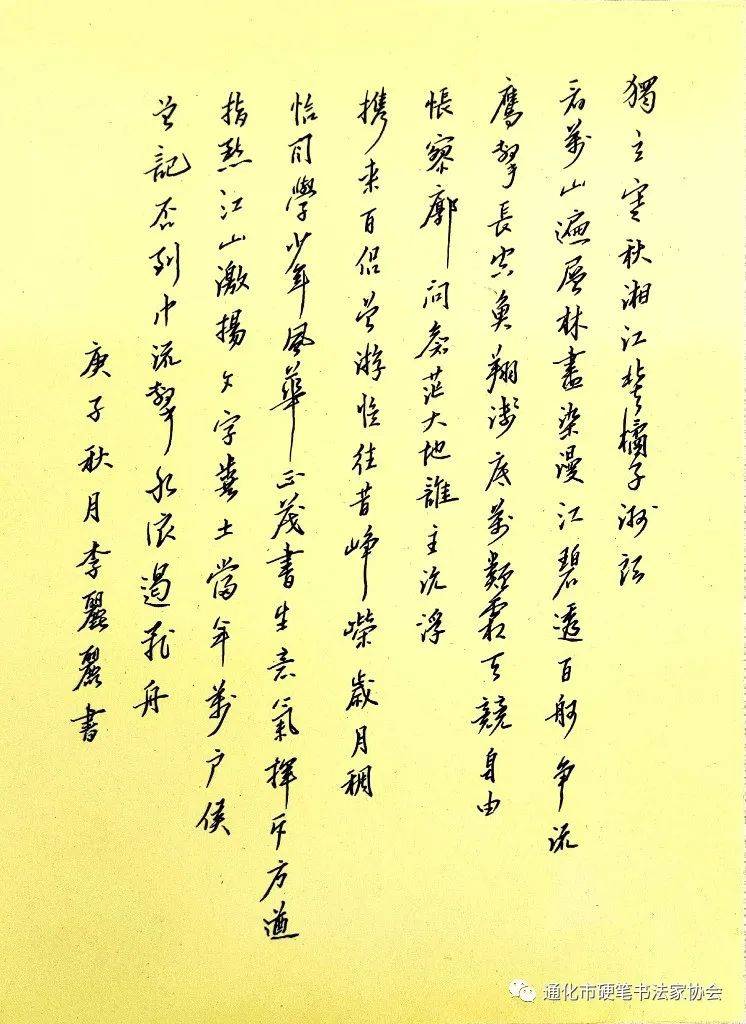 獨立寒秋湘江北去橘子洲頭
看萬山遍層林盡染漫江碧透百舸争流
鹰擊長空魚翔淺底萬類霜天競自由
悵寥廓問蒼茫大地誰主沉浮
携来百侣曾游憶往昔峥嶸歲月稠
恰同學少年風華正茂書生意氣揮斥方遒
指點江山激揚文字糞土當年萬户侯
曾記否到中流擊水浪遏飛舟
庚子秋月李麗麗書
通化市硬笔书法家协会